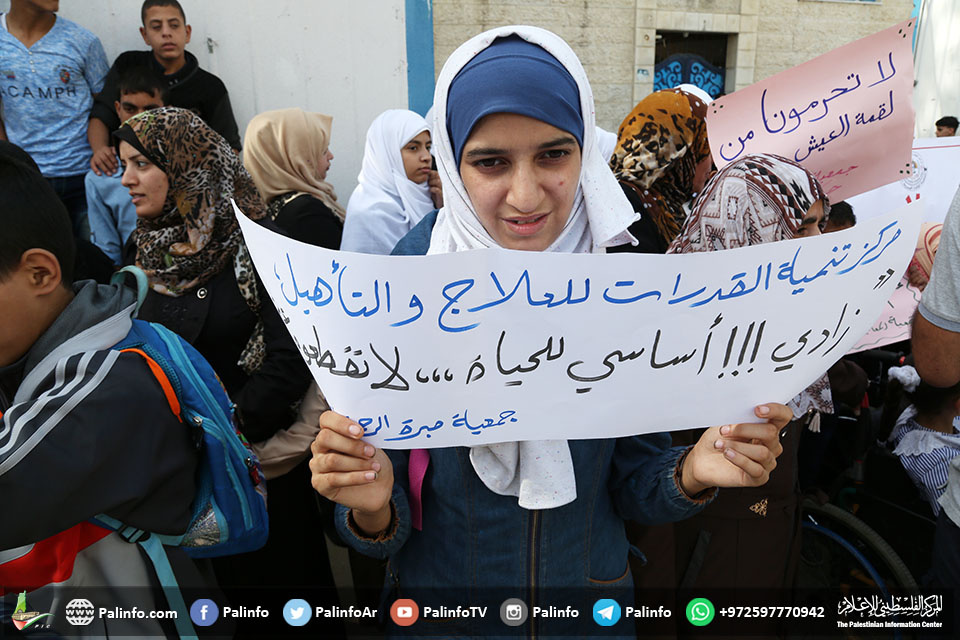 CAMPH
لا تحرمون من
لقمة العيش
مركز تنمية القدرات للعلاج والتأهيل
زادي !!! أساسي للحياة ،،،، لا تقطعو
جمعية مبرة الرحـ
Palinfo.com
Palinfo
PalinfoAr
PalinfoTV
Palinfo
Palinfo
+972597770942
المركز الفلسطيني للإعلام
The Palestinian Information Center
PIC